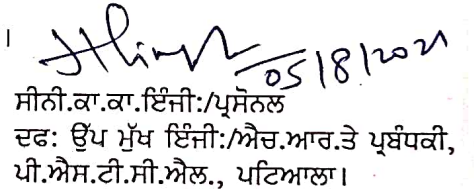 ।
05/8/2021
ਸੀਨੀ.ਕਾ.ਕਾ.ਇੰਜੀ:/ਪ੍ਰਸੋਨਲ
ਦਫ: ਉੱਪ ਮੁੱਖ ਇੰਜੀ:/ਐਚ.ਆਰ.ਤੇ ਪ੍ਰਬੰਧਕੀ,
ਪੀ.ਐਸ.ਟੀ.ਸੀ.ਐਲ., ਪਟਿਆਲਾ।